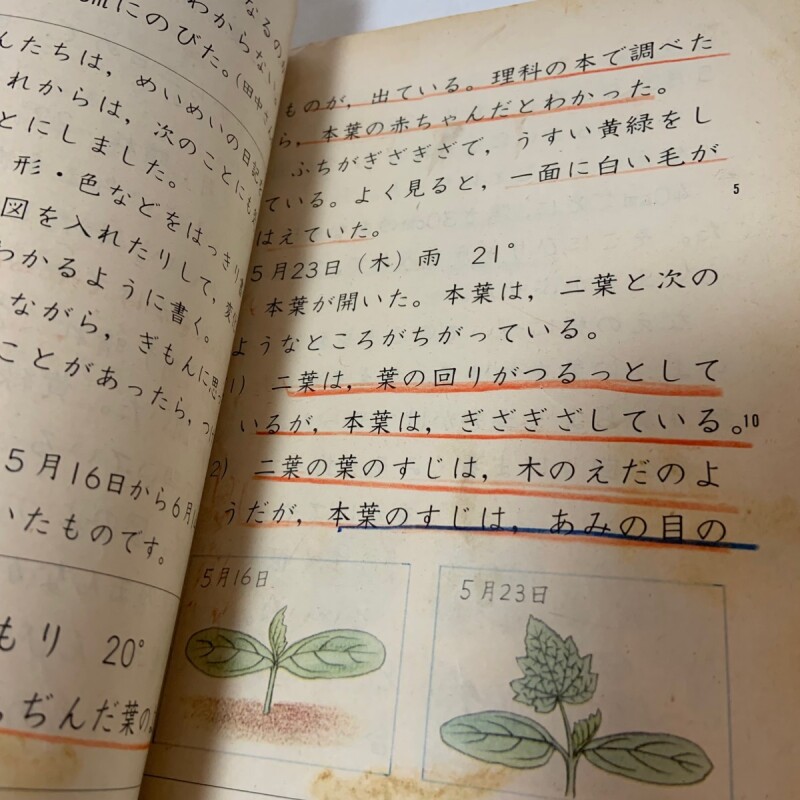 なるの
わからない
cmにのびた。(田中さん
んたちは，めいめいの日記
れからは，次のことにも
とにしました。
形・色などをはっきり
図を入れたりして，変
わかるように書く。
ながら，ぎもんに思
ことがあったら，つ
5月16日から6月
いたものです。
もり 20°
，ぢんだ葉の
ものが，出ている。理科の本で調べた
ら，本葉の赤ちゃんだとわかった。
ふちがぎざぎざで，うすい黄緑をし
ている。よく見ると，一面に白い毛が
5
はえていた。
5月23日（木）雨 21°
本葉が開いた。本葉は，二葉と次の
ようなところがちがっている。
1) 二葉は，葉の回りがつるっとして
いるが，本葉は，ぎざぎざしている。
10
2) 二葉の葉のすじは，木のえだのよ
うだが，本葉のすじは，あみの目の
5月16日
5月23日